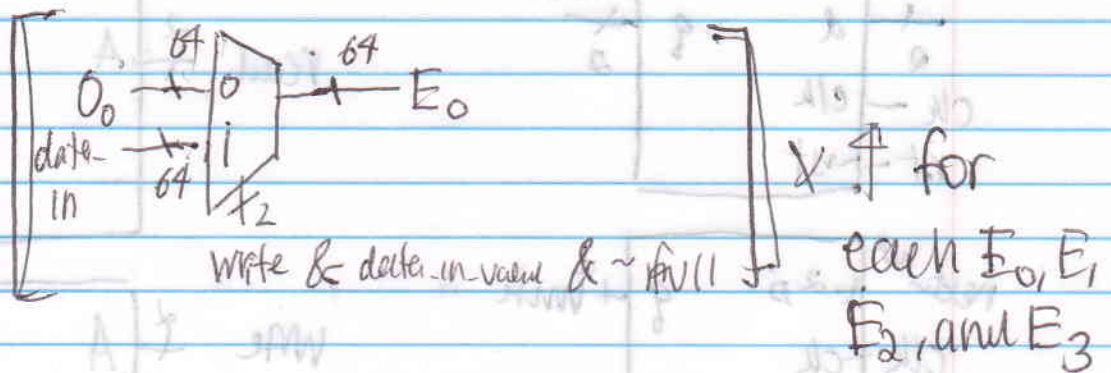 64
64
O₀
0
E₀
data-
in
1
64
2
write & data-in-valid & ~full
x 4 for
each E₀, E₁
E₂, and E₃